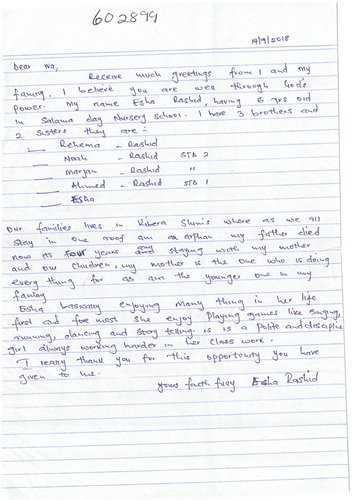 602899
14/9/2018
Dear Wa,
Receive much greetings from I and my
family. I believe you are well through God's
power. My name Esha Rashid, having 6 yrs old
in Salama day Nursery school. I have 3 brothers and
2 sisters they are:-
Rehema - Rashid
Noah - Rashid STD 2
Maryan - Rashid "
Ahmed - Rashid STD 1
Esha
Our families lives in Kibera Slum's where as we all
stay in one roof am an orphan my father died
now its four years and staying with my mother
and our children, my mother is the one who is doing
every thing for as am the younger one in my
family
Esha basically enjoying many thing in her life
first and foremost she enjoy playing games like singing,
running, dancing and story telling is is a Polite and discipline
girl always working harder in her class work.
I really thank you for this opportunity you have
given to me.
yours faithfully Esha Rashid